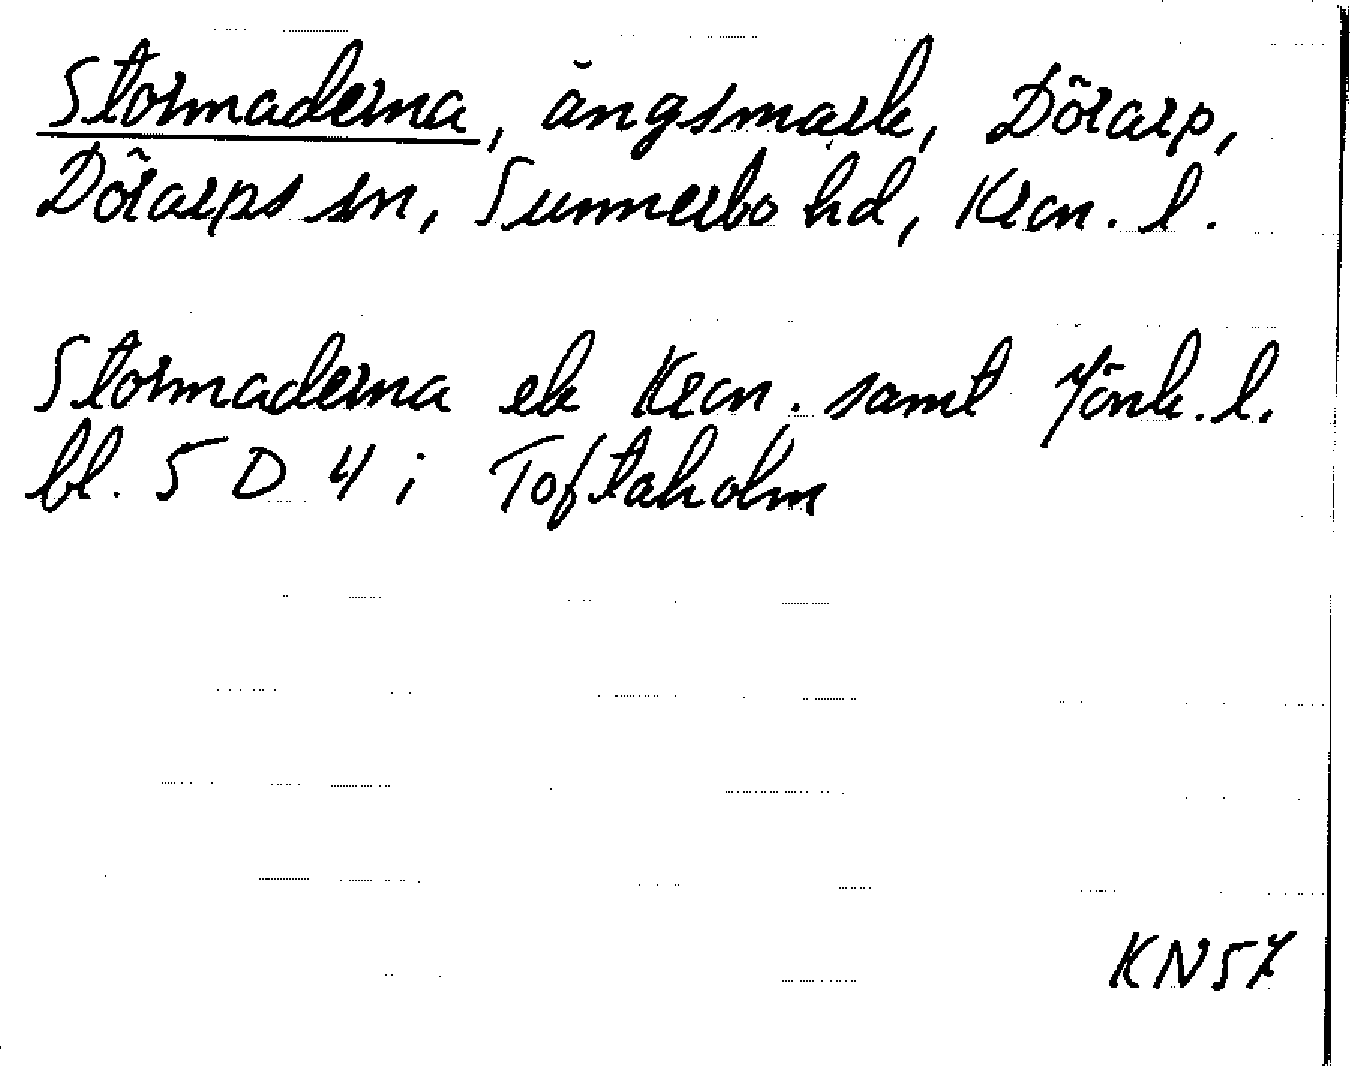 Stormaderna, ängsmark, Dörarp,
Dörarps sn, Sunnerbo hd, Kron. l.
Stormaderna ek Kron. samt Jönk. l.
bl. 5 D 4 ; Toftaholm
KN57